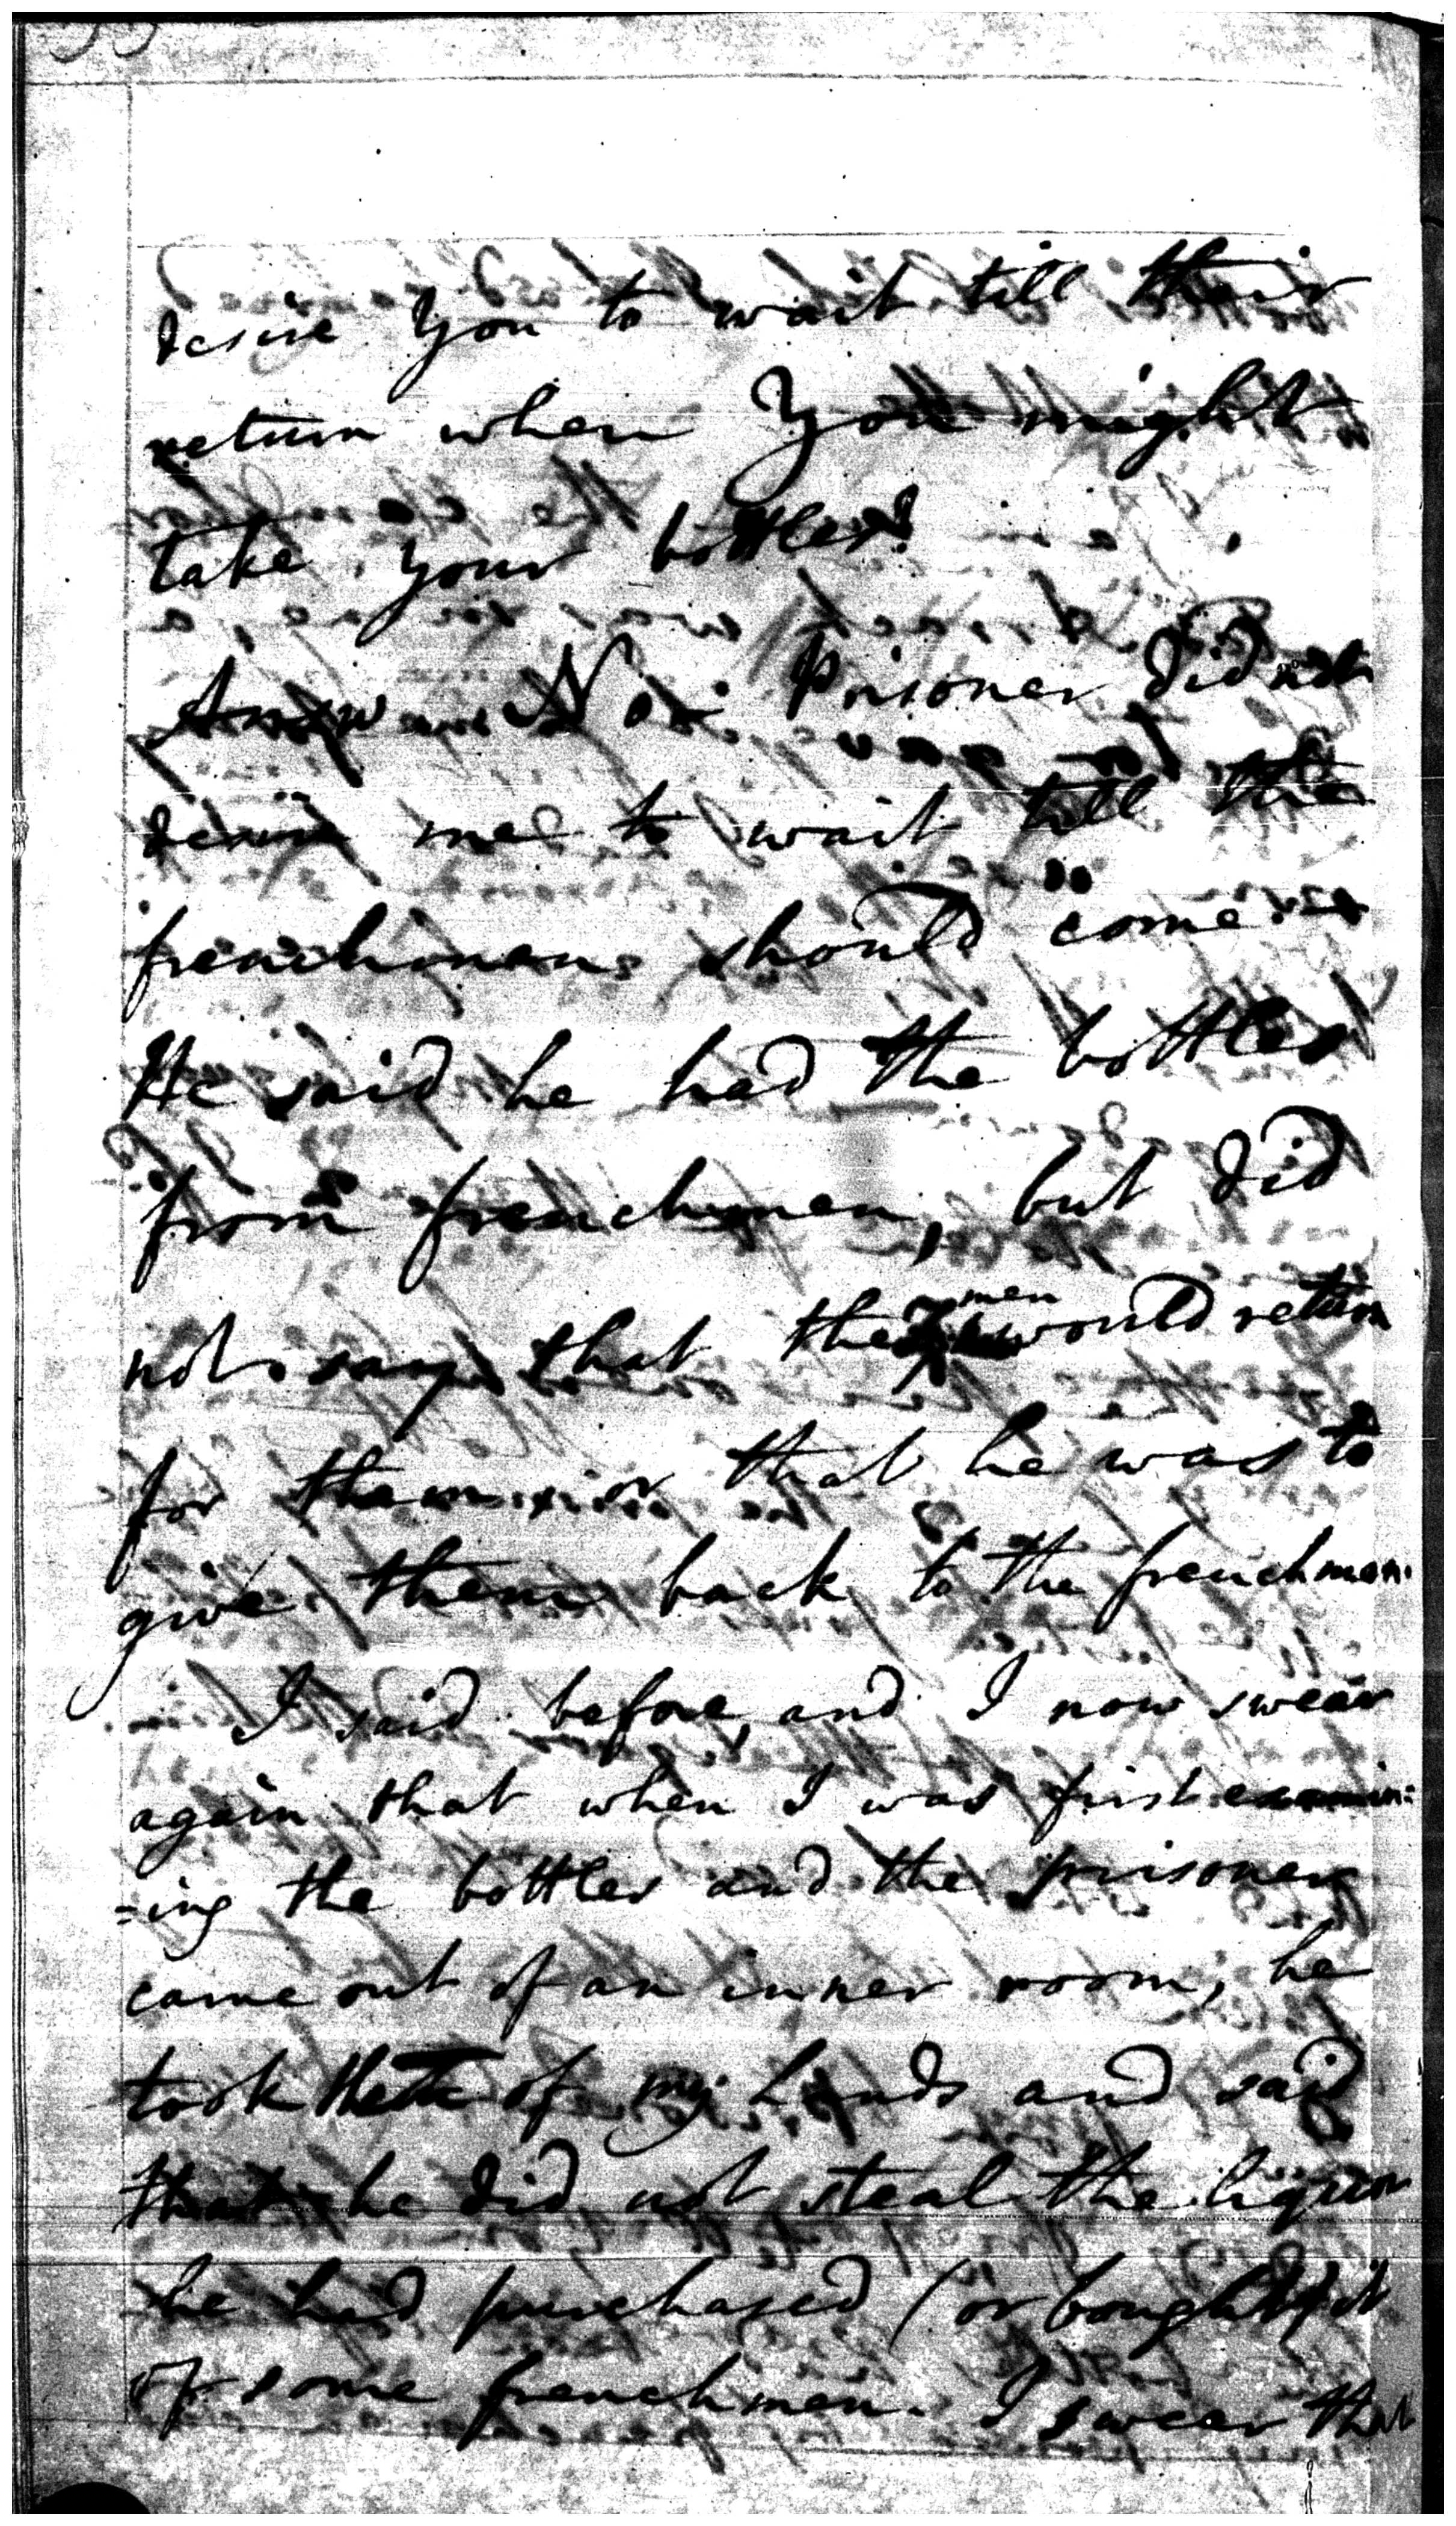 desire you to wait till their
return when you might
take your bottles?
Answ. No. Prisoner did not
desire me to wait till the
frenchmen should come.
He said he had the bottles
from frenchmen, but did
not say that the men would return
for them or that he was to
give them back to the frenchmen.
I said before, and I now swear
again that when I was first examin=
=ing the bottles and the prisoner
came out of an inner room, he
took them of my hands and said
that he did not steal the liquor
he had purchased (or bought) it
of some frenchmen. I swear that